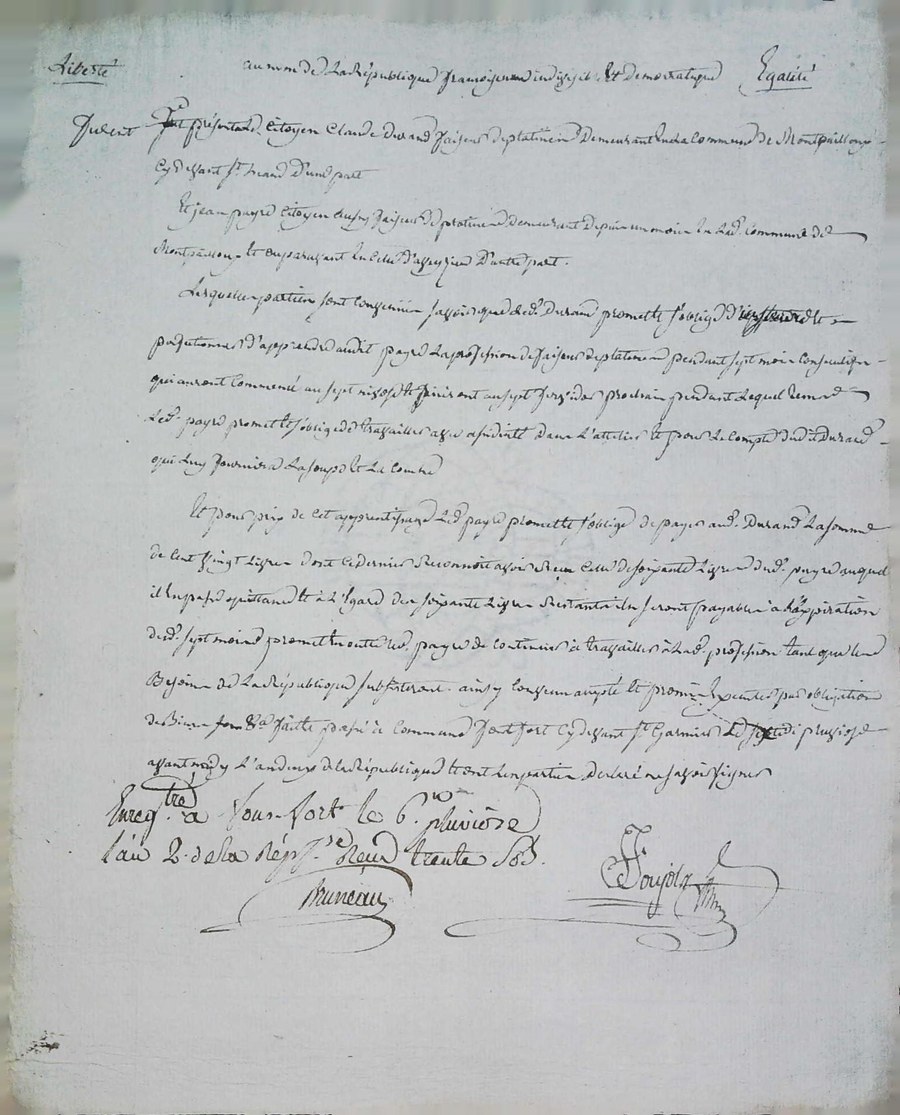 Liberté au nom de La République francoise un indivisible Et Democratique Egalité
furent present Le Citoyen Claude Durand faiseur de platines Demeurant En La Commune de Montpailloux
Cy devant St. D'une part
Et jean payre Citoyen aussy faiseur de platines demeurant depuis un mois En Lad. Commune de
et auparavant En Celle D'autre part.
Lesquelles parties sont Convenues savoir que Led. Durand promet Et s'oblige
d'apprendre audit payre La profession de faiseur de platines pendant sept mois Consecutifs
qui auront Commencé au sept nivose Et finiront au sept prochain pendant Lequel tems
Led. payre promet Et s'oblige de travailler avec assiduité Dans L'attelier Et pour Le Compte dudit Durand
qui Luy fournira La soupe Et La Couche
Et pour prix de Cet apprentissage Led. payre promet Et s'oblige de payer aud. Durand La somme
de Cent Vingt Livres dont Ce dernier Reconnoit avoir Reçu Celle de soixante Livres dud. payre auquel
il En passe quittance Et à L'Egard des soixante Livres Restantes Elles seront payables à L'expiration
desd. sept mois promet En outre Led. payre de Continuer à travailler à Lad. profession tant que Les
Besoins de La République subsisteront ainsy Convenu accepté Et promis Executer par obligation
de Biens fait Et passé à Commune fontfort Cy devant St. Garmier Le pluviose
avant midy L'an deux de la République Et ont Les parties declaré ne savoir signer
Enregtré. à fonfort le 6. pluviose
l'an 2. de la Rép. Reçu trente sols.
Bruneau Poujol